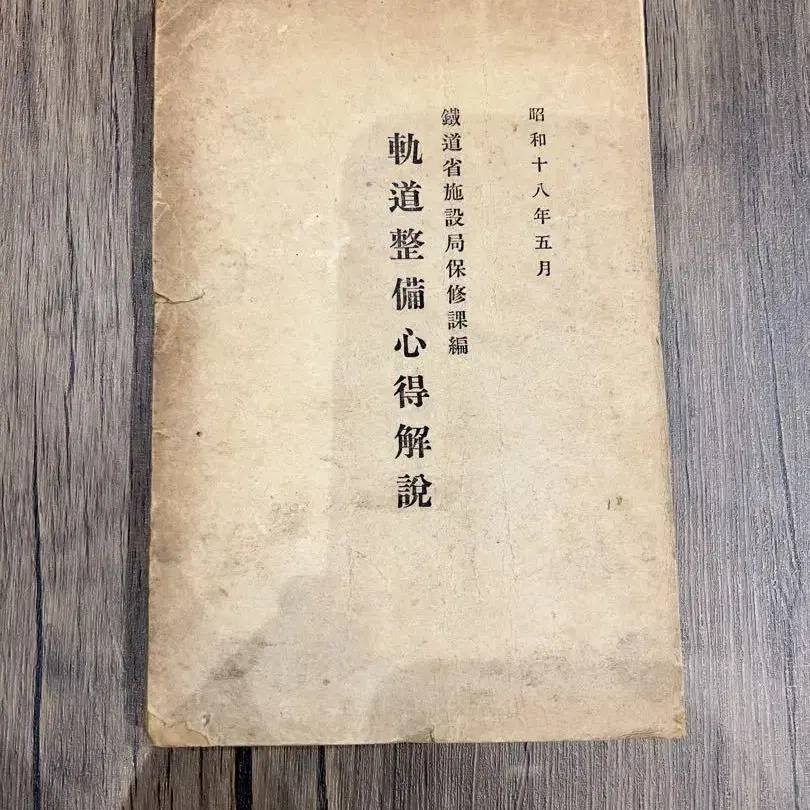 昭和十八年五月
鐵道省施設局保修課編
軌道整備心得解說